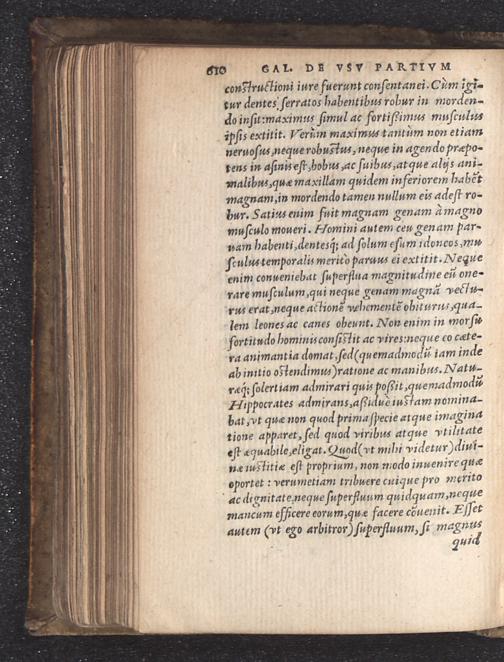 610 GAL. DE VSV PARTIVM
constructioni iure fuerunt consentanei. Cùm igi-
tur dentes serratos habentibus robur in morden-
do insit: maximus simul ac fortissimus musculus
ipsis extitit. Verùm maximus tantùm non etiam
neruosus, neque robustus, neque in agendo præpo-
tens in asinis est, bobus, ac suibus, atque alijs ani-
malibus, quæ maxillam quidem inferiorem habẽt
magnam, in mordendo tamen nullum eis adest ro-
bur. Satius enim fuit magnam genam à magno
musculo moueri. Homini autem ceu genam par-
uam habenti, dentesq; ad solum esum idoneos, mu
sculus temporalis meritò paruus ei extitit. Neque
enim conueniebat superflua magnitudine eũ one-
rare musculum, qui neque genam magnã vectu-
rus erat, neque actionẽ vehementẽ obiturus, qua-
lem leones ac canes obeunt. Non enim in morsu
fortitudo hominis consistit ac vires: neque eo cæte-
ra animantia domat, sed (quemadmodũ iam inde
ab initio ostendimus) ratione ac manibus. Natu-
ræq; solertiam admirari quis possit, quemadmodũ
Hippocrates admirans, assiduè iustam nomina-
bat, vt quæ non quod prima specie atque imagina
tione apparet, sed quod viribus atque vtilitate
est æquabile, eligat. Quod (vt mihi videtur) diui-
næ iustitiæ est proprium, non modo inuenire quæ
oportet: verumetiam tribuere cuique pro merito
ac dignitate, neque superfluum quidquam, neque
mancum efficere eorum, quæ facere cõuenit. Esset
autem (vt ego arbitror) superfluum, si magnus
quid